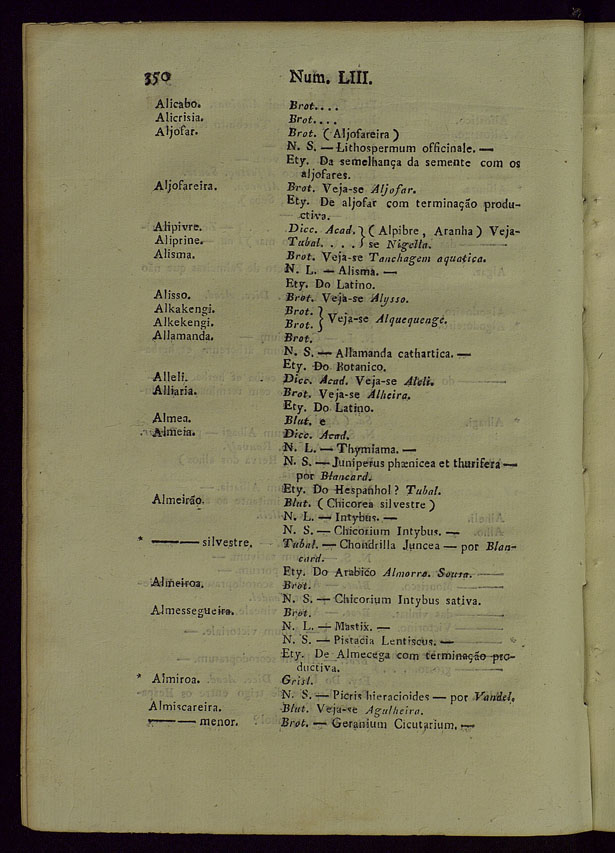 350 Num. LIII.
Alicabo. Brot....
Alicrisia. Brot....
Aljofar. Brot. ( Aljofareira )
N. S. — Lithospermum officinale. —
Ety. Da semelhança da semente com os
aljofares.
Aljofareira. Brot. Veja-se Aljofar.
Ety. De aljofar com terminação produ-
ctiva.
Alipivre. Dicc. Acad. } ( Alpibre, Aranha ) Veja-
Aliprine. Tubal. . . . } se Nigella.
Alisma. Brot. Veja-se Tanchagem aquatica.
N. L. — Alisma. —
Ety. Do Latino.
Alisso. Brot. Veja-se Alysso.
Alkakengi. Brot. } Veja-se Alquequenge.
Alkekengi. Brot. }
Allamanda. Brot.
N. S. — Allamanda cathartica. —
Ety. Do Botanico.
Alleli. Dicc. Acad. Veja-se Aleli.
Alliaria. Brot. Veja-se Alheira.
Ety. Do Latino.
Almea. Blut. e
Almeia. Dicc. Acad.
N. L. — Thymiama. —
N. S. — Juniperus phænicea et thurifera —
por Blancard.
Ety. Do Hespanhol ? Tubal.
Almeirão. Blut. ( Chicorea silvestre )
N. L. — Intybus. —
N. S. — Chicorium Intybus. —
* ——— silvestre. Tubal. — Chondrilla Juncea — por Blan-
card.
Ety. Do Arabico Almorra. Sousa.
Almeiroa. Brot.
N. S. — Chicorium Intybus sativa.
Almessegueira. Brot.
N. L. — Mastix. —
N. S. — Pistacia Lentiscus. —
Ety. De Almecega com terminação pro-
ductiva.
* Almiroa. Grisl.
N. S. — Picris hieracioides — por Vandel.
Almiscareira. Blut. Veja-se Agulheira.
——— menor. Brot. — Geranium Cicutarium. —